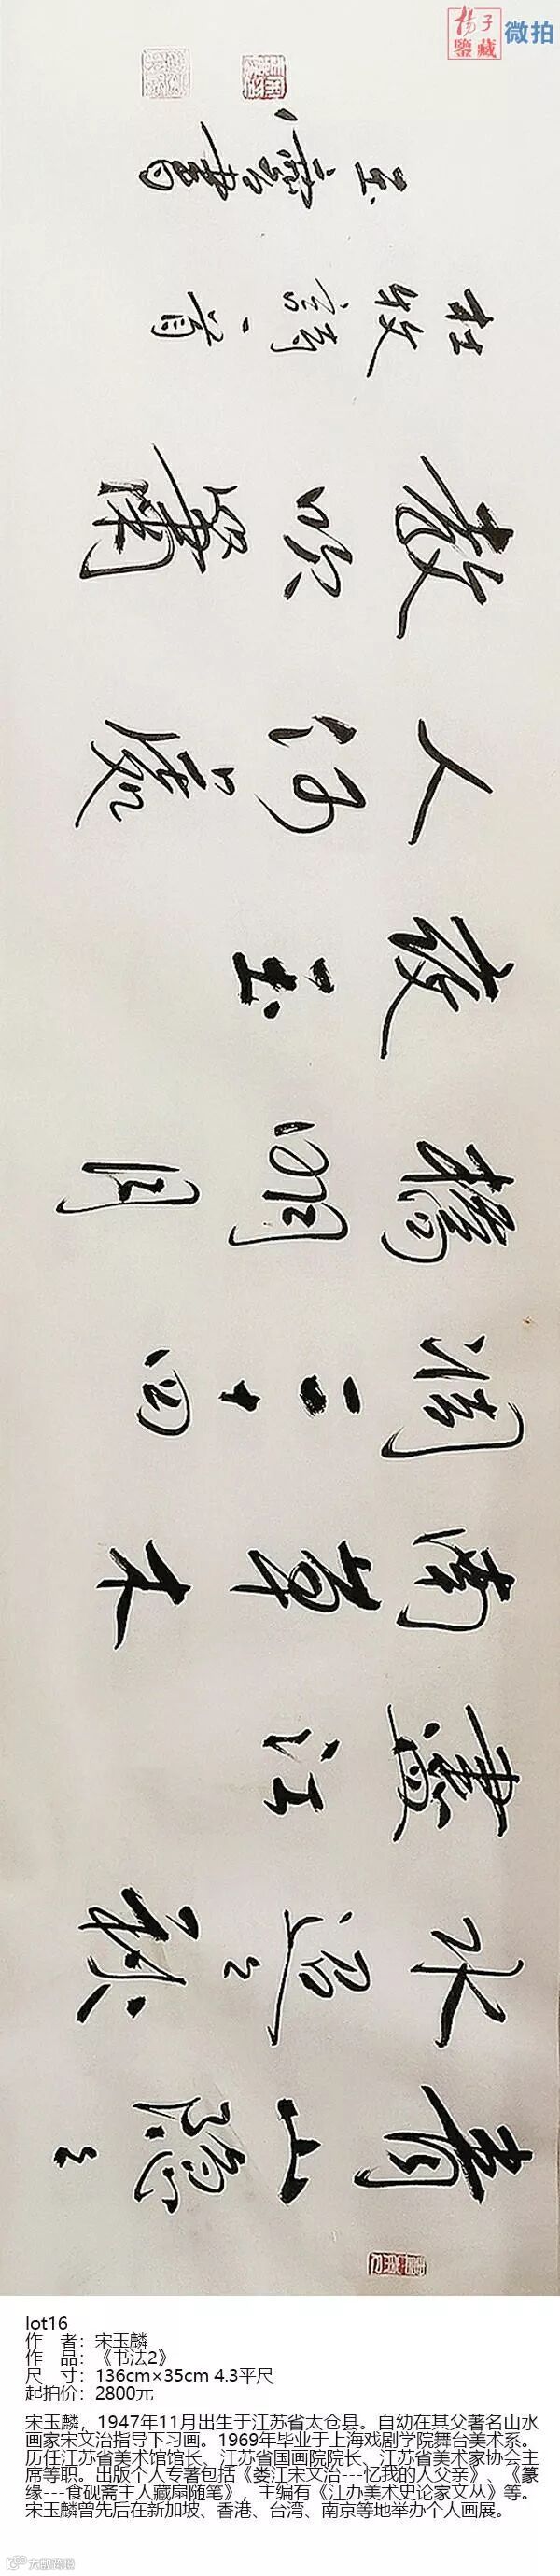 揚子
鑒藏
微拍
青山隱々
水迢々秋
盡江
南草木
凋二十四
橋明月
夜玉
人何處
教吹簫
杜牧詩一首
玉麟書
lot16
作 者：宋玉麟
作 品：《书法2》
尺 寸：136cm×35cm 4.3平尺
起拍价：2800元
宋玉麟，1947年11月出生于江苏省太仓县。自幼在其父著名山水
画家宋文治指导下习画。1969年毕业于上海戏剧学院舞台美术系。
历任江苏省美术馆馆长、江苏省国画院院长、江苏省美术家协会主
席等职。出版个人专著包括《娄江宋文治---忆我的人父亲》、《篆
缘---食砚斋主人藏扇随笔》，主编有《江办美术史论家文丛》等。
宋玉麟曾先后在新加坡、香港、台湾、南京等地举办个人画展。